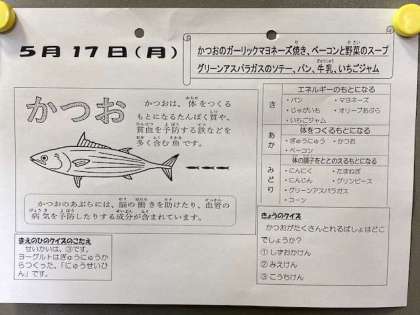 5月17日(月)
かつおのガーリックマヨネーズ焼き、ベーコンと野菜のスープ
グリーンアスパラガスのソテー、パン、牛乳、いちごジャム
かつお
かつおは、体をつくる
もとになるたんぱく質や、
貧血を予防する鉄などを
多く含む魚です。
かつおのあぶらには、脳の働きを助けたり、血管の
病気を予防したりする成分が含まれています。
まえのひのクイズのこたえ
せいかいは、③です。
ヨーグルトはぎゅうにゅうか
らつくった、「にゅうせいひ
ん」です。
き
エネルギーのもとになる
・パン ・マヨネーズ
・じゃがいも ・オリーブあぶら
・いちごジャム
あか
体をつくるもとになる
・ぎゅうにゅう ・かつお
・ベーコン
みどり
体の調子をととのえるもとになる
・にんにく ・たまねぎ
・にんじん ・グリンピース
・グリーンアスパラガス
・コーン
きょうのクイズ
かつおがたくさんとれるばしょはどこ
でしょうか?
① しずおかけん
② みえけん
③ こうちけん